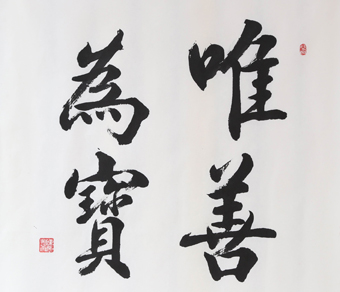 唯善
為寶